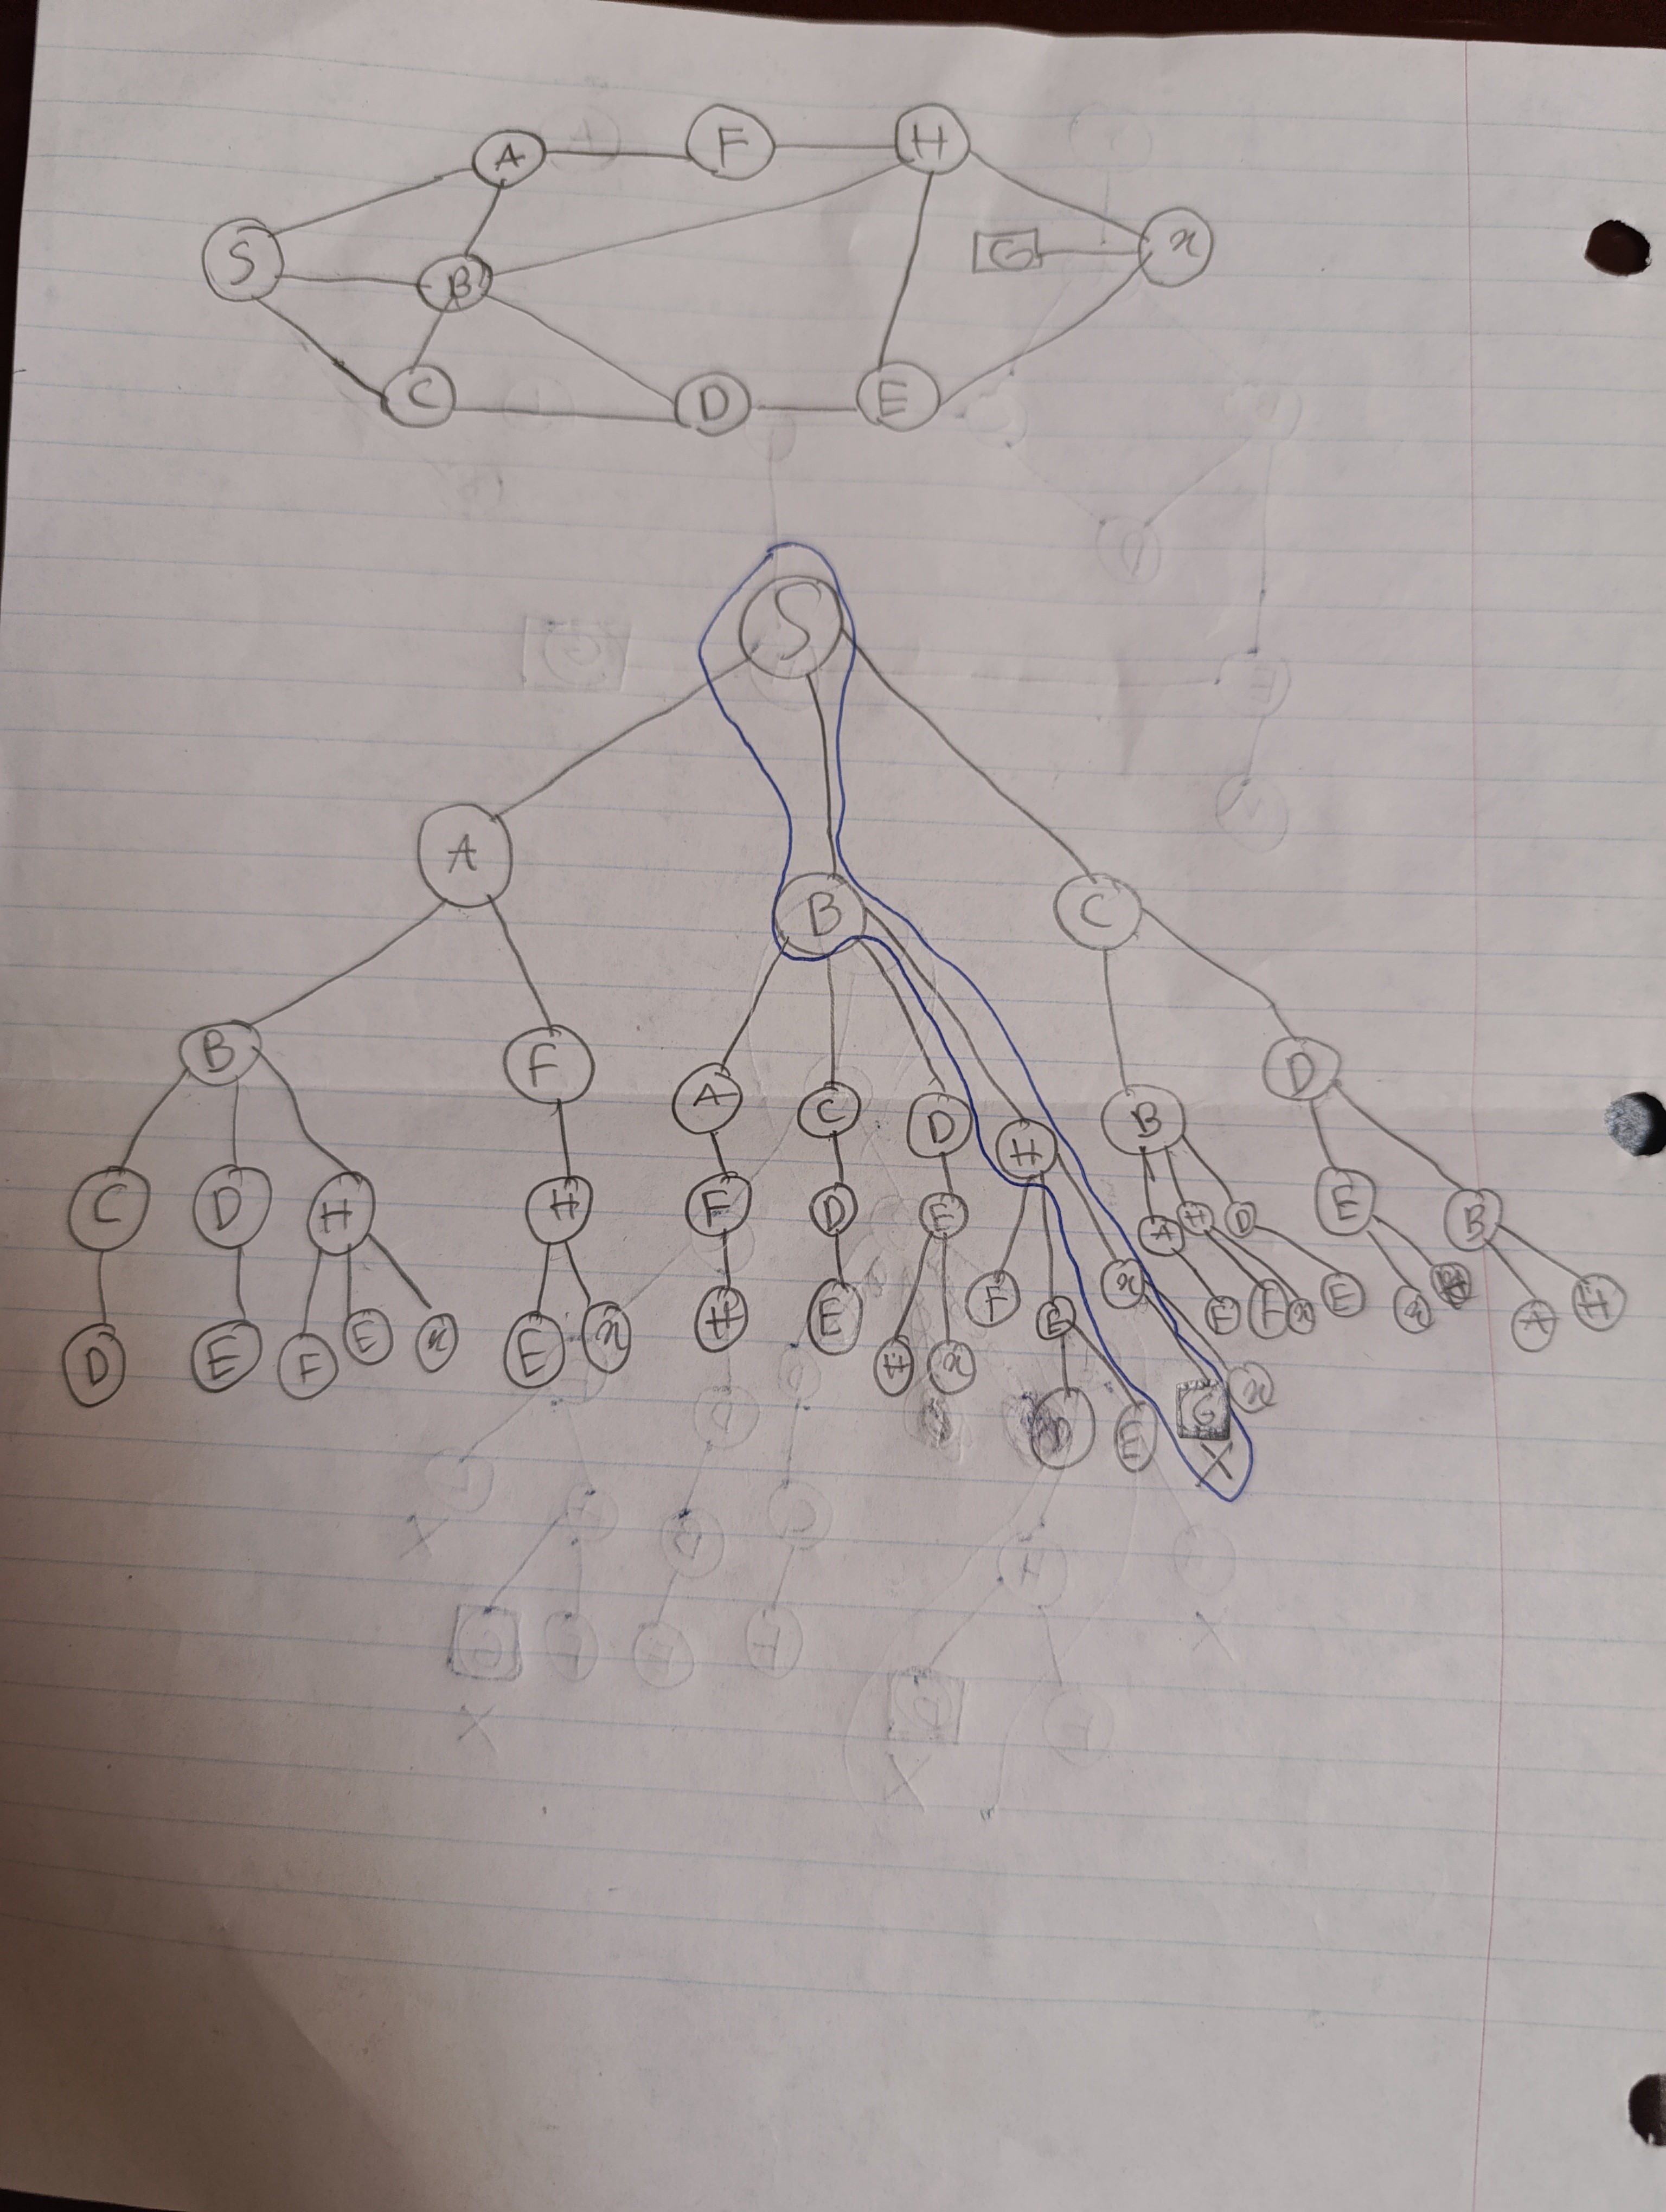 A F H
S B G x
C D E
S
A B C
B F A C D H B D
C D H H F D E F E x A H D E B
D E F E x E x H E H x F F x E x A H
E G x
X